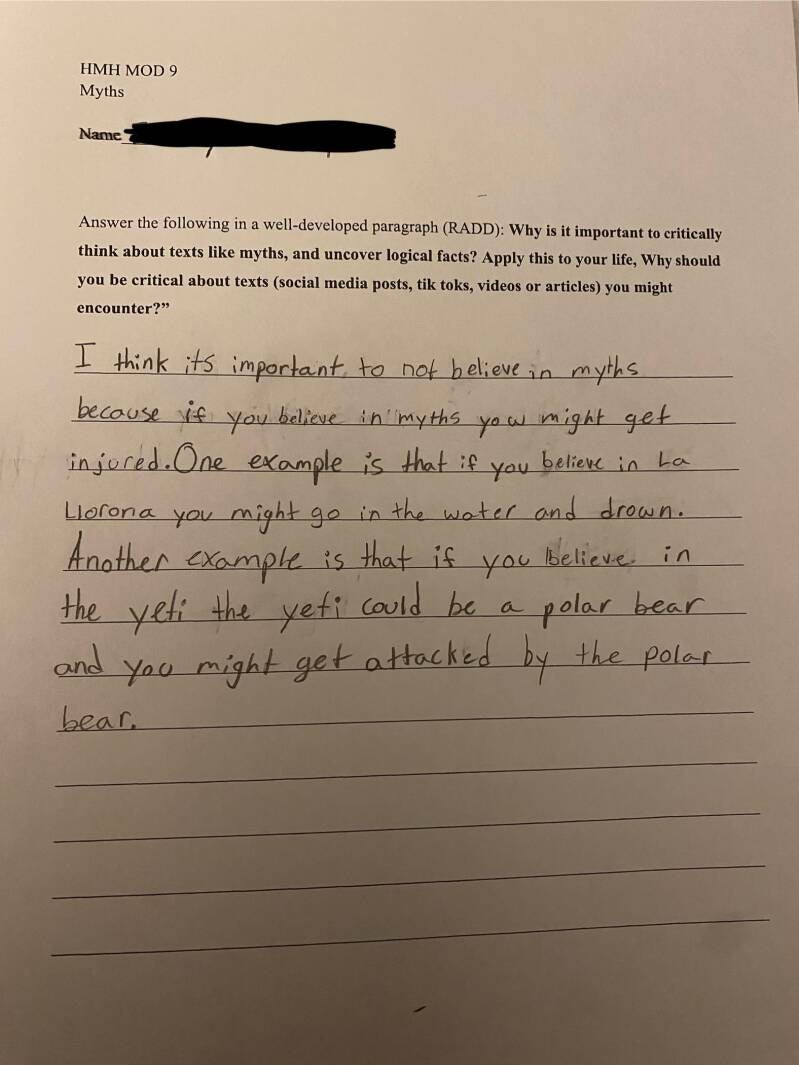 HMH MOD 9
Myths
Name
Answer the following in a well-developed paragraph (RADD): Why is it important to critically
think about texts like myths, and uncover logical facts? Apply this to your life, Why should
you be critical about texts (social media posts, tik toks, videos or articles) you might
encounter?”
I think its important to not believe in myths
because if you believe in myths you might get
injured. One example is that if you believe in La
Llorona you might go in the water and drown.
Another example is that if you believe in
the yeti the yeti could be a polar bear
and you might get attacked by the polar
bear.